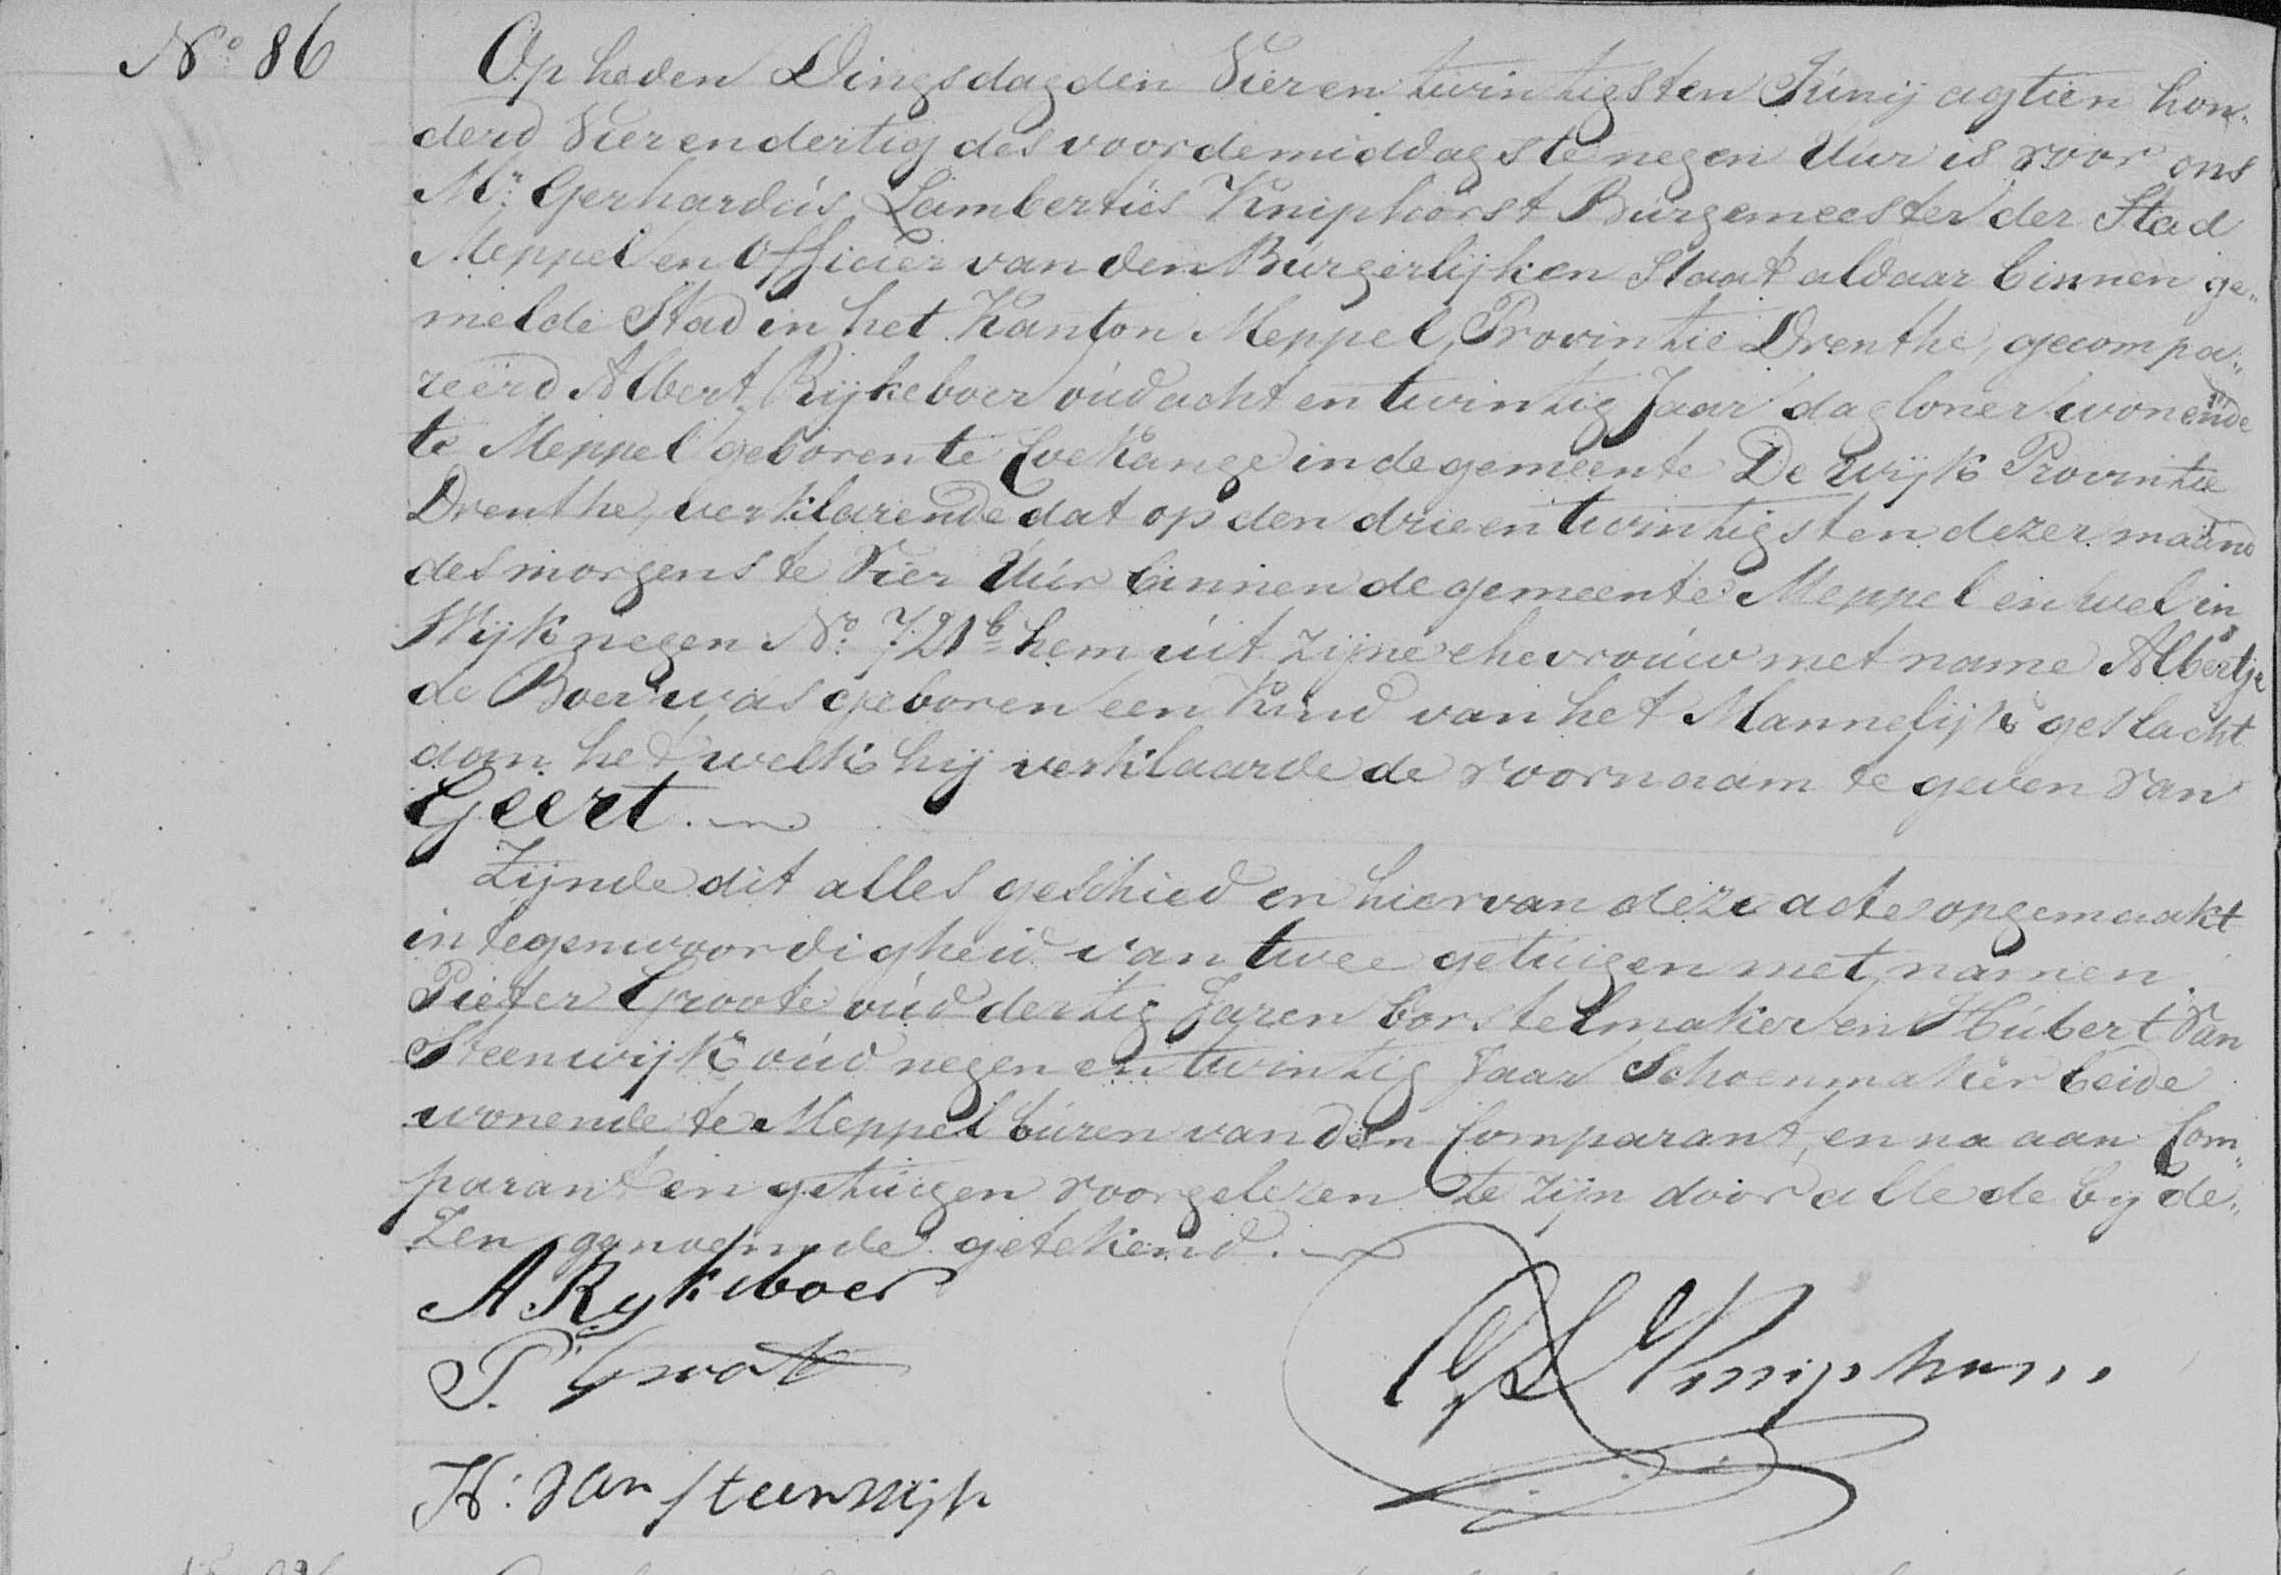 No 86
Op heden Dingsdag den Vier en twintigsten Junij agtien hon„
derd Vier en dertig des voordemiddags te negen Uur is voor ons
Mr Gerhardus Lambertus Kniphorst Burgemeester der Stad
Meppel en Officier van den Burgerlijken Staat aldaar binnen ge„
melde Stad in het Kanton Meppel, Provintie Drenthe, gecompa„
reerd Albert Rijkeboer oud acht en twintig Jaar dagloner wonende
te Meppel geboren te Coekange in de gemeente De wijk Provintie
Drenthe, verklarende dat op den drie en twintigsten dezer maand
des morgens te Vier Uur binnen de gemeente Meppel en wel in
Wijk negen No 721b hem uit zijne ehevrouw met name Albertje
de Boer was geboren een Kind van het Mannelijk geslacht
dom het welk hij verklaarde de voornaam te geven van
Geert.
Zijnde dit alles geschied en hiervan deze acte opgemaakt
in tegenwoordigheid van twee getuigen met namen
Pieter Groote oud dertig Jaren borstelmaker en Hubert van
Steenwijk oud negen en twintig Jaar Schoenmaker beide
wonende te Meppel buren van den Comparant, en na aan Com„
parant en getuigen voorgelezen te zijn door alle de by de„
zen genoemde getekend.
A Rykeboer
P. Groote
GL Kniphorst
H: van steenwijk